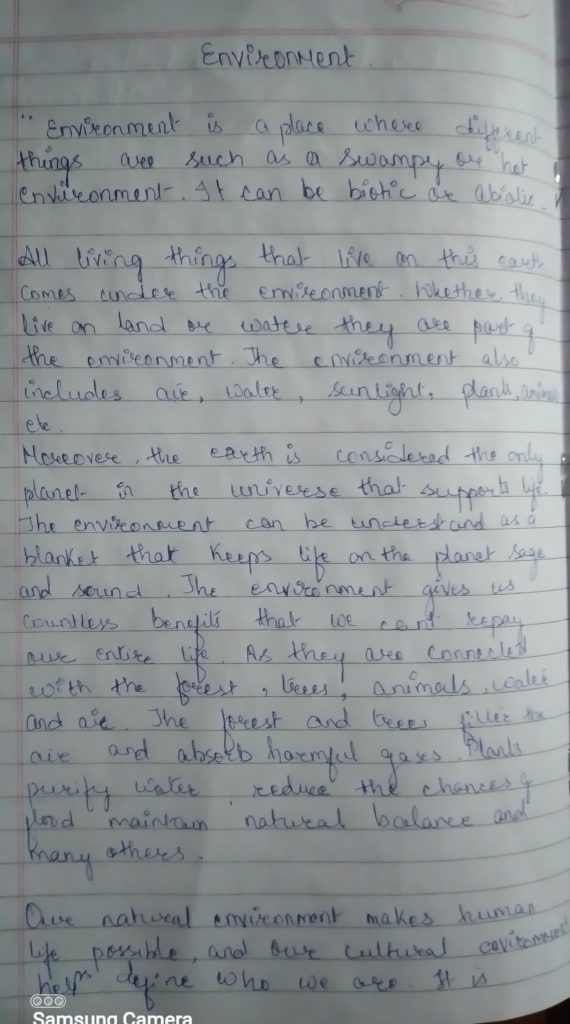 Environment.
"Environment is a place where different
things are such as a swampy or hot
environment. It can be biotic or abiotic.
All living things that live on this earth
comes under the environment. Whether they
live on land or water they are part of
the environment. The environment also
includes air, water, sunlight, plants, animals
etc.
Moreover, the earth is considered the only
planet in the universe that supports life.
The environment can be understand as a
blanket that keeps life on the planet sage
and sound. The environment gives us
countless benefits that we can't repay
our entire life. As they are connected
with the forest, trees, animals, water
and air. The forest and trees filter the
air and absorb harmful gases. Plants
purify water, reduce the chances of
flood maintain natural balance and
many others.
Our natural environment makes human
life possible, and our cultural environment
helps define who we are. It is
Samsung Camera